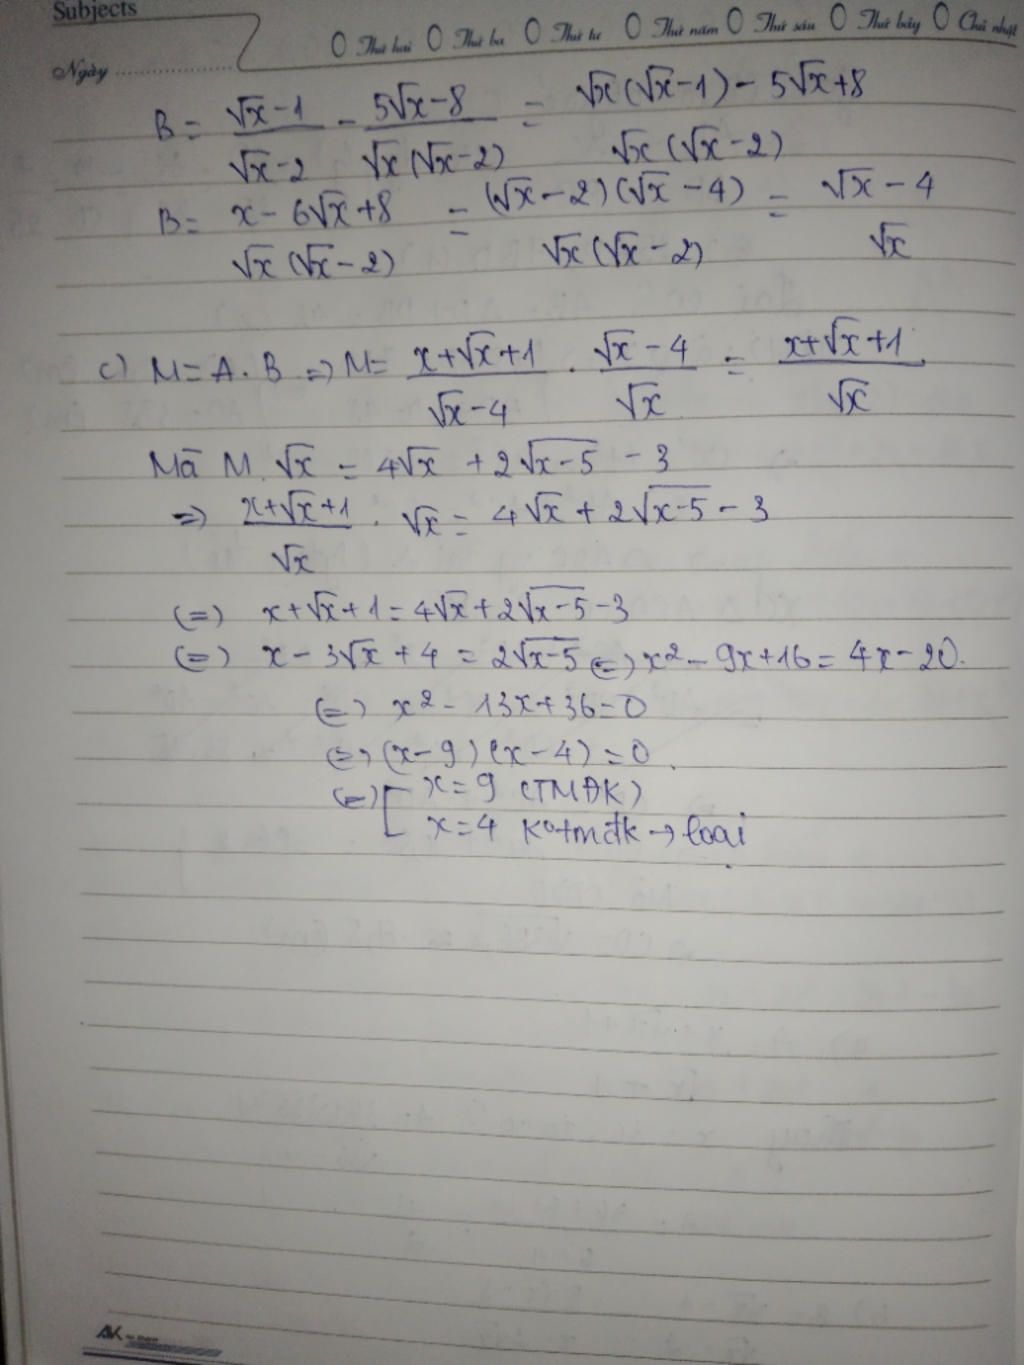 Subjects
Ngày
Thứ hai Thứ ba Thứ tư Thứ năm Thứ sáu Thứ bảy Chủ nhật
B = (√x - 1)/(√x - 2) - (5√x - 8)/(√x(√x - 2)) = (√x(√x - 1) - 5√x + 8)/(√x(√x - 2))
B = (x - 6√x + 8)/(√x(√x - 2)) = ((√x - 2)(√x - 4))/(√x(√x - 2)) = (√x - 4)/√x
c) M = A . B => M = (x + √x + 1)/(√x - 4) . (√x - 4)/√x = (x + √x + 1)/√x
Mã M . √x = 4√x + 2√(x-5) - 3
=> (x + √x + 1)/√x . √x = 4√x + 2√(x-5) - 3
(=) x + √x + 1 = 4√x + 2√(x-5) - 3
(=) x - 3√x + 4 = 2√(x-5) (=) x² - 9x + 16 = 4x - 20.
(=) x² - 13x + 36 = 0
(=) (x - 9)(x - 4) = 0
(=) [ x = 9 (TMĐK)
x = 4 K° tmđk → loại
AK